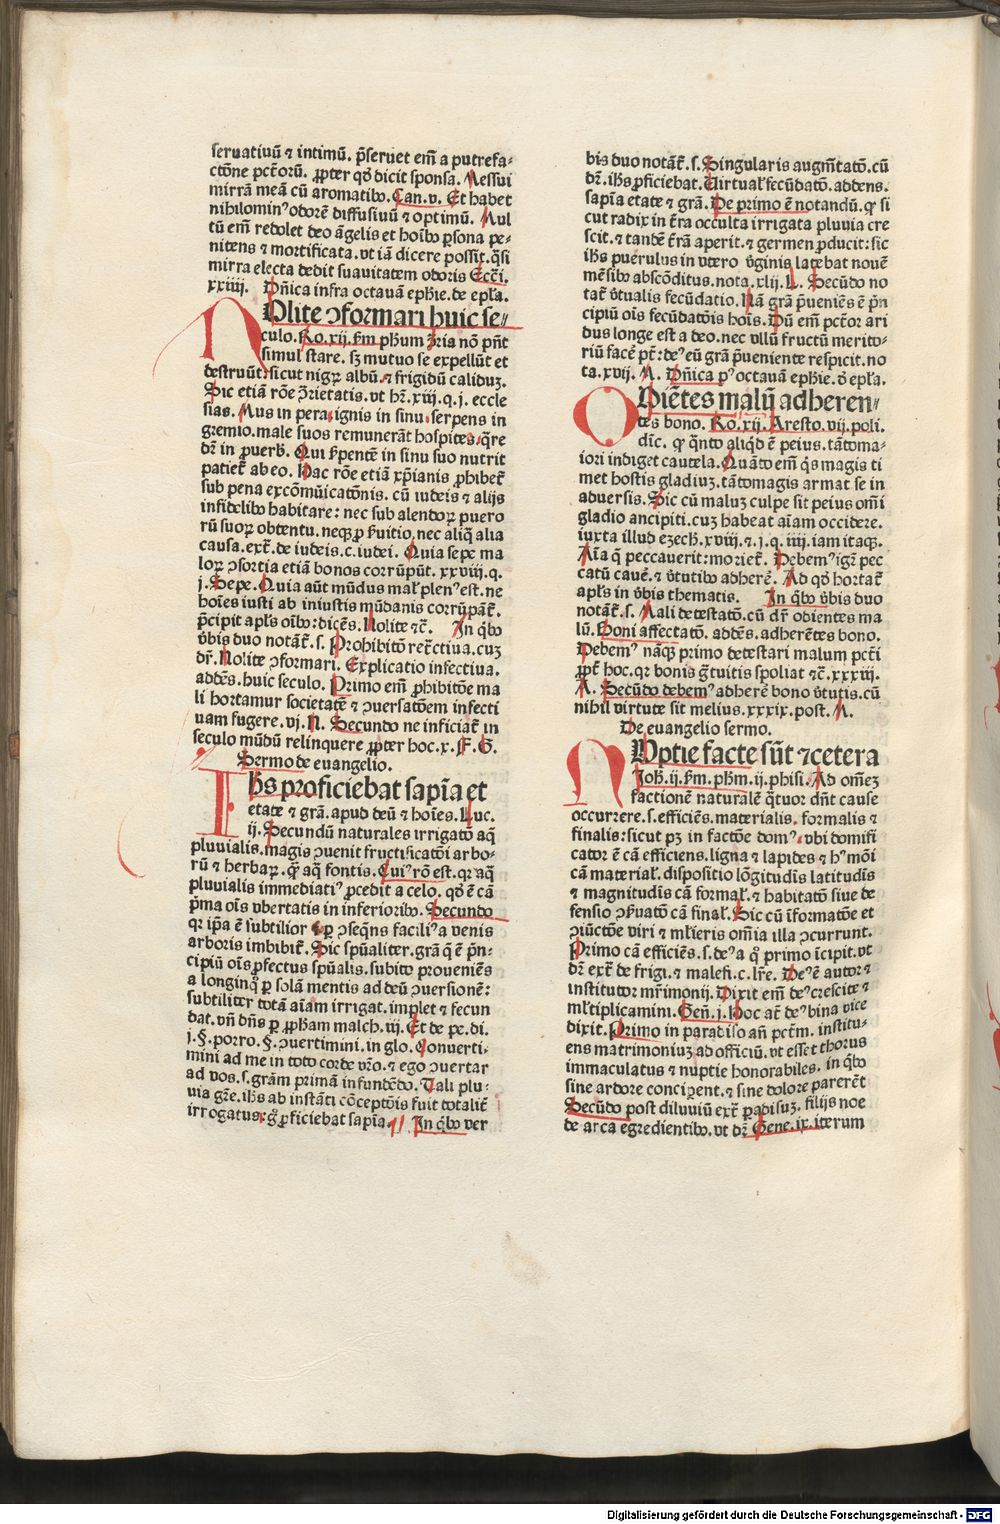 seruatiuū ⁊ intimū. p̄seruet em̄ a putrefa⸗
ctōne pct̄orū. ꝓpter qd̛ dicit sponsa. Messui
mirrā meā cū aromatibꝰ. Can. v. Et habet
nihilominꝰ odorē diffusiuū ⁊ optimū. Mul
tū em̄ redolet deo āgelis et hoībꝰ ꝑsona pe⸗
nitens ⁊ mortificata. vt iā dicere possit. q̄si
mirra electa dedit suauitatem odoris Ecc̄i.
xxiiii. Dn̄ica infra octauā epħie. de epl̄a.
NOlite ↄformari huic se⸗
culo. Ro. xij. ẜm pħum ↄ̄ria nō pn̄t
simul stare. sꝫ mutuo se expellūt et
destruūt: sicut nigꝝ albū. ⁊ frigidū caliduꝫ.
Sic etiā rōe ↄ̄rietatis. vt hꝛ̄. xiij. q. j. eccle
sias. Mus in pera. ignis in sinu. serpens in
gremio. male suos remunerāt hospites. q̄re
dꝛ̄ in ꝓuerb̄. Qui ẜpentē in sinu suo nutrit
patiet̄ ab eo. Hac rōe etiā xp̄ianis ꝓhibet̄
sub pena excōmūicatōnis. cū iudeis ⁊ alijs
infidelibꝰ habitare: nec sub alendoꝝ puero
rū suoꝝ obtentu. neqꝫ ꝓ ẜuitio. nec aliq̄ alia
causa. ext̄. de iudeis. c. iudei. Quia sepe ma
loꝝ ↄsortia etiā bonos corrūpūt. xxviij. q.
j. Sepe. Quia aūt mūdus mal̄ plenꝰ est. ne
hoīes iusti ab iniustis mūdanis corrūpāt̄.
p̄cipit apl̄s oībꝰ: dicēs. Nolite ⁊c̄. In qͥbꝰ
v̄bis duo notāt̄. s. Prohibitō ret̄ctiua. cuꝫ
dꝛ̄. Nolite ↄformari. Explicatio infectiua.
addēs. huic seculo. Primo em̄ ꝓhibitōe ma
li hortamur societatē ⁊ ↄuersatōem infecti
uam fugere. vj. N. Secundo ne inficiat̄ in
seculo mūdū relinquere ꝓpter hoc. x. F. G.
Sermo de euangelio.
IHs proficiebat sapīa et
etate ⁊ grā. apud deū ⁊ hoīes. Luc.
ij. Secundū naturales irrigatō aq̄
pluuialis. magis ↄuenit fructificatōi arbo⸗
rū ⁊ herbaꝝ. q̄ aq̄ fontis. Cuiꝰ rō est. qꝛ aq̄
pluuialis immediatiꝰ ꝓcedit a celo. qd̛ ē cā
p̄ma oīs vbertatis in inferioribꝰ. Secundo
qꝛ ip̄a ē subtilior ⁊ ꝑ ↄseq̄ns faciliꝰ a venis
arboris imbibit̄. Sic sp̄ualiter. grā q̄ ē p̄n⸗
cipiū oīs ꝓfectus sp̄ualis. subito proueniēs
a longinqͦ ꝑ solā mentis ad deū ↄuersionē:
subtiliter totā aīam irrigat. implet ⁊ fecun
dat. vn̄ dn̄s ꝑ ꝓpħam malch. iij. Et de pe. di.
j. §. porro. §. ↄuertimini. in glo. Conuerti⸗
mini ad me in toto corde vr̄o. ⁊ ego ↄuertar
ad vos. s. grām primā infundēdo. Tali plu⸗
uia gr̄e. iħs ab instāti cōceptōis fuit totalit̄
irrogatus. qͣ ꝓficiebat sapīa. In qͥbꝰ ver
bis duo notāt̄. s. Singularis augm̄tatō. cū
dꝛ̄. iħs ꝓficiebat. Virtual̄ fecūdatō. addens.
sapīa etate ⁊ grā. De primo ē notandū. ꝙ si
cut radix in t̄ra occulta irrigata pluuia cre
scit. ⁊ tandē t̄rā aperit. ⁊ germen ꝓducit: sic
iħs puerulus in vtero v̄ginis latebat nouē
mēsibꝰ abscōditus. nota. xlij. L. Secūdo no
tat̄ v̄tualis fecūdatio. Nā grā p̄ueniēs ē p̄n
cipiū oīs fecūdatōis hoīs. Dū em̄ pct̄or ari
dus longe est a deo. nec vllū fructū merito⸗
riū facē pt̄: deꝰ eū grā p̄ueniente respicit. no
ta. xvij. M. Dn̄ica pꝰ octauā epħie. d̄ epl̄a.
ODiētes malū adheren⸗
tes bono. Ro. xij. Aresto. vij. poli.
dīc. ꝙ qͣnto aliqd̛ ē peius. tātoma⸗
iori indiget cautela. Quāto em̄ qͥs magis ti
met hostis gladiuꝫ. tātomagis armat se in
aduersis. Sic cū maluꝫ culpe sit peius om̄i
gladio ancipiti. cuꝫ habeat aīam occidere.
iuxta illud eꝫecħ. xviij. ⁊. j. q. iiij. iam itaqꝫ.
Aīa q̄ peccauerit: moriet̄. Debemꝰ igr̄ pec
catū cauē. ⁊ v̄tutibꝰ adherē. Ad qd̛ hortat̄
apl̄s in v̄bis thematis. In qͥbꝰ v̄bis duo
notāt̄. s. Mali detestatō. cū dꝛ̄ odientes ma
lū. Boni affectatō. addēs. adherētes bono.
Debemꝰ nāqꝫ primo detestari malum pct̄i
ꝓpt̄ hoc. qꝛ bonis gͣtuitis spoliat ⁊c̄. xxxiij.
A. Secūdo debemꝰ adherē bono v̄tutis. cū
nihil virtute sit melius. xxxix. post. M.
De euangelio sermo.
NUptie facte sūt ⁊cetera
Joħ. ij. ẜm. pħm. ij. phisi. Ad om̄eꝫ
factionē naturalē qͣtuor dn̄t cause
occurrere. s. efficiēs. materialis. formalis ⁊
finalis: sicut pꝫ in factōe domꝰ. vbi domifi
cator ē cā efficiens. ligna ⁊ lapides ⁊ hꝰmōi
cā material̄. dispositio lōgitudīs latitudīs
⁊ magnitudīs cā formal̄. ⁊ habitatō siue de
fensio ↄẜuatō cā final̄. Sic cū īformatōe et
ↄiūctōe viri ⁊ mlīeris om̄ia illa ↄcurrunt.
Primo cā efficiēs. s. deꝰ a qͦ primo īcipit. vt
dꝛ̄ ext̄ de frigi. ⁊ malefi. c. lr̄e. Deꝰ ē autor ⁊
institutor mr̄imonij. Dixit em̄ deꝰ crescite ⁊
ml̄tiplicamini. Gen̄. j. Hoc at̄ deꝰ bina vice
dixit. Primo in paradiso an̄ pct̄m. institu⸗
ens matrimoniuꝫ ad officiū. vt esset thorus
immaculatus ⁊ nuptie honorabiles. in qͥbꝰ
sine ardore conciꝑent. ⁊ sine dolore parerēt
Secūdo post diluuiū ext̄ ꝑadisuꝫ. filijs noe
de arca egredientibꝰ. vt dꝛ̄ Gene. ix. iterum
Digitalisierung gefördert durch die Deutsche Forschungsgemeinschaft - DFG